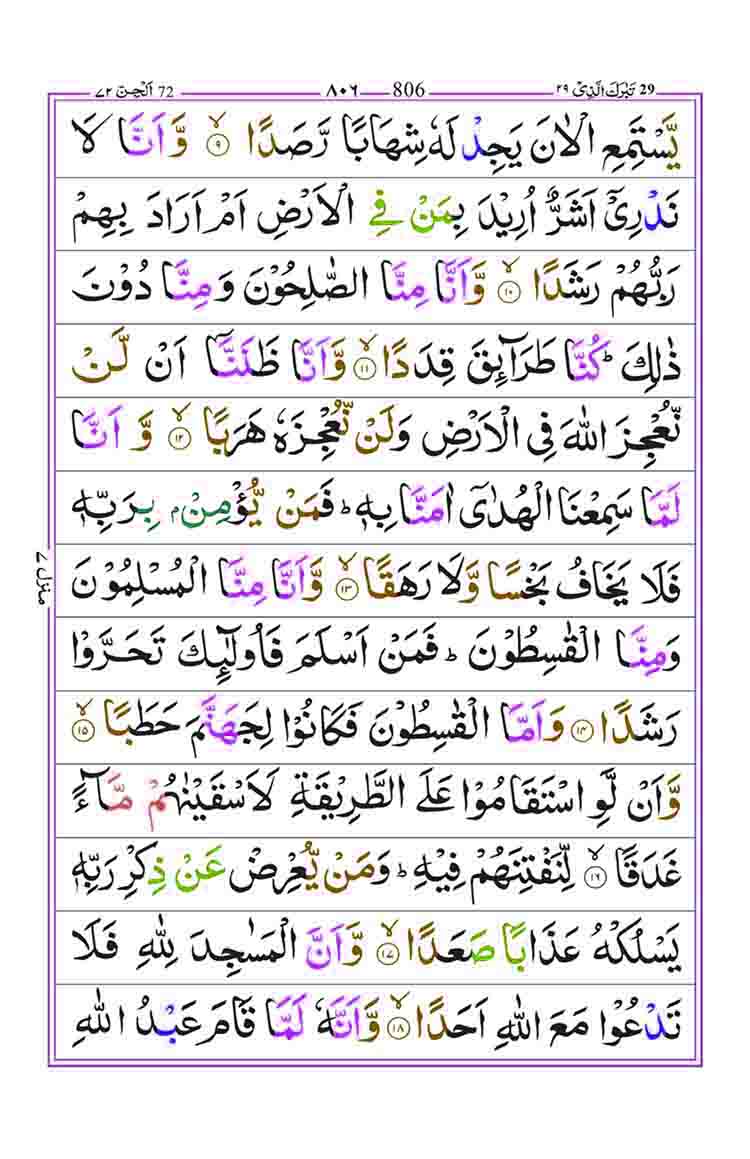 29 تَبٰرَكَ الَّذِىْ ٢٩ 806 ٨٠٦ 72 اَلْجِنّ ٧٢
يَّسْتَمِعِ الْاٰنَ يَجِدْ لَهٗ شِهَابًا رَّصَدًا ۙ‏ ٩ وَّاَنَّا لَا
نَدْرِىْۤ اَشَرٌّ اُرِيْدَ بِمَنْ فِى الْاَرْضِ اَمْ اَرَادَ بِهِمْ
رَبُّهُمْ رَشَدًا ۙ ١٠ وَّاَنَّا مِنَّا الصّٰلِحُوْنَ وَمِنَّا دُوْنَ
ذٰلِكَ ؕ كُنَّا طَرَآئِقَ قِدَدًا ۙ ١١ وَّاَنَّا ظَنَنَّاۤ اَنْ لَّنْ
نُّعْجِزَ اللّٰهَ فِى الْاَرْضِ وَلَنْ نُّعْجِزَهٗ هَرَبًا ۙ ١٢ وَّاَنَّا
لَمَّا سَمِعْنَا الْهُدٰىۤ اٰمَنَّا بِهٖ ؕ فَمَنْ يُّؤْمِنْۢ بِرَبِّهٖ
فَلَا يَخَافُ بَخْسًا وَّلَا رَهَقًا ۙ ١٣ وَّاَنَّا مِنَّا الْمُسْلِمُوْنَ
وَمِنَّا الْقٰسِطُوْنَ ؕ فَمَنْ اَسْلَمَ فَاُولٰٓئِكَ تَحَرَّوْا
رَشَدًا ١٤ وَاَمَّا الْقٰسِطُوْنَ فَكَانُوْا لِجَهَنَّمَ حَطَبًا ۙ ١٥
وَّاَنْ لَّوِ اسْتَقَامُوْا عَلَى الطَّرِيْقَةِ لَاَسْقَيْنٰهُمْ مَّآءً
غَدَقًا ۙ ١٦ لِّنَفْتِنَهُمْ فِيْهِ ؕ وَمَنْ يُّعْرِضْ عَنْ ذِكْرِ رَبِّهٖ
يَسْلُكْهُ عَذَابًا صَعَدًا ۙ ١٧ وَّاَنَّ الْمَسٰجِدَ لِلّٰهِ فَلَا
تَدْعُوْا مَعَ اللّٰهِ اَحَدًا ۙ ١٨ وَّاَنَّهٗ لَمَّا قَامَ عَبْدُ اللّٰهِ
منزل ٧